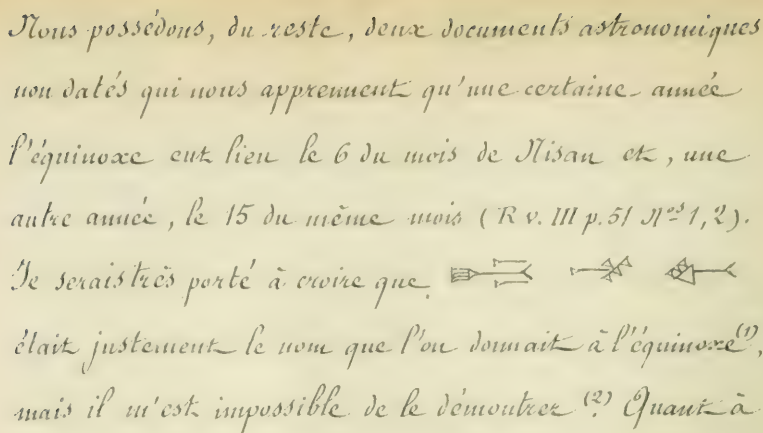 Nous possédons, du reste, deux documents astronomiques
non datés qui nous apprennent qu'une certaine année
l'équinoxe eut lieu le 6 du mois de Nisan et, une
autre année, le 15 du même mois (R v. III p. 51 Nos 1, 2).
Je serais très porté à croire que
était justement le nom que l'on donnait à l'équinoxe (1),
mais il m'est impossible de le démontrer (2). Quant à